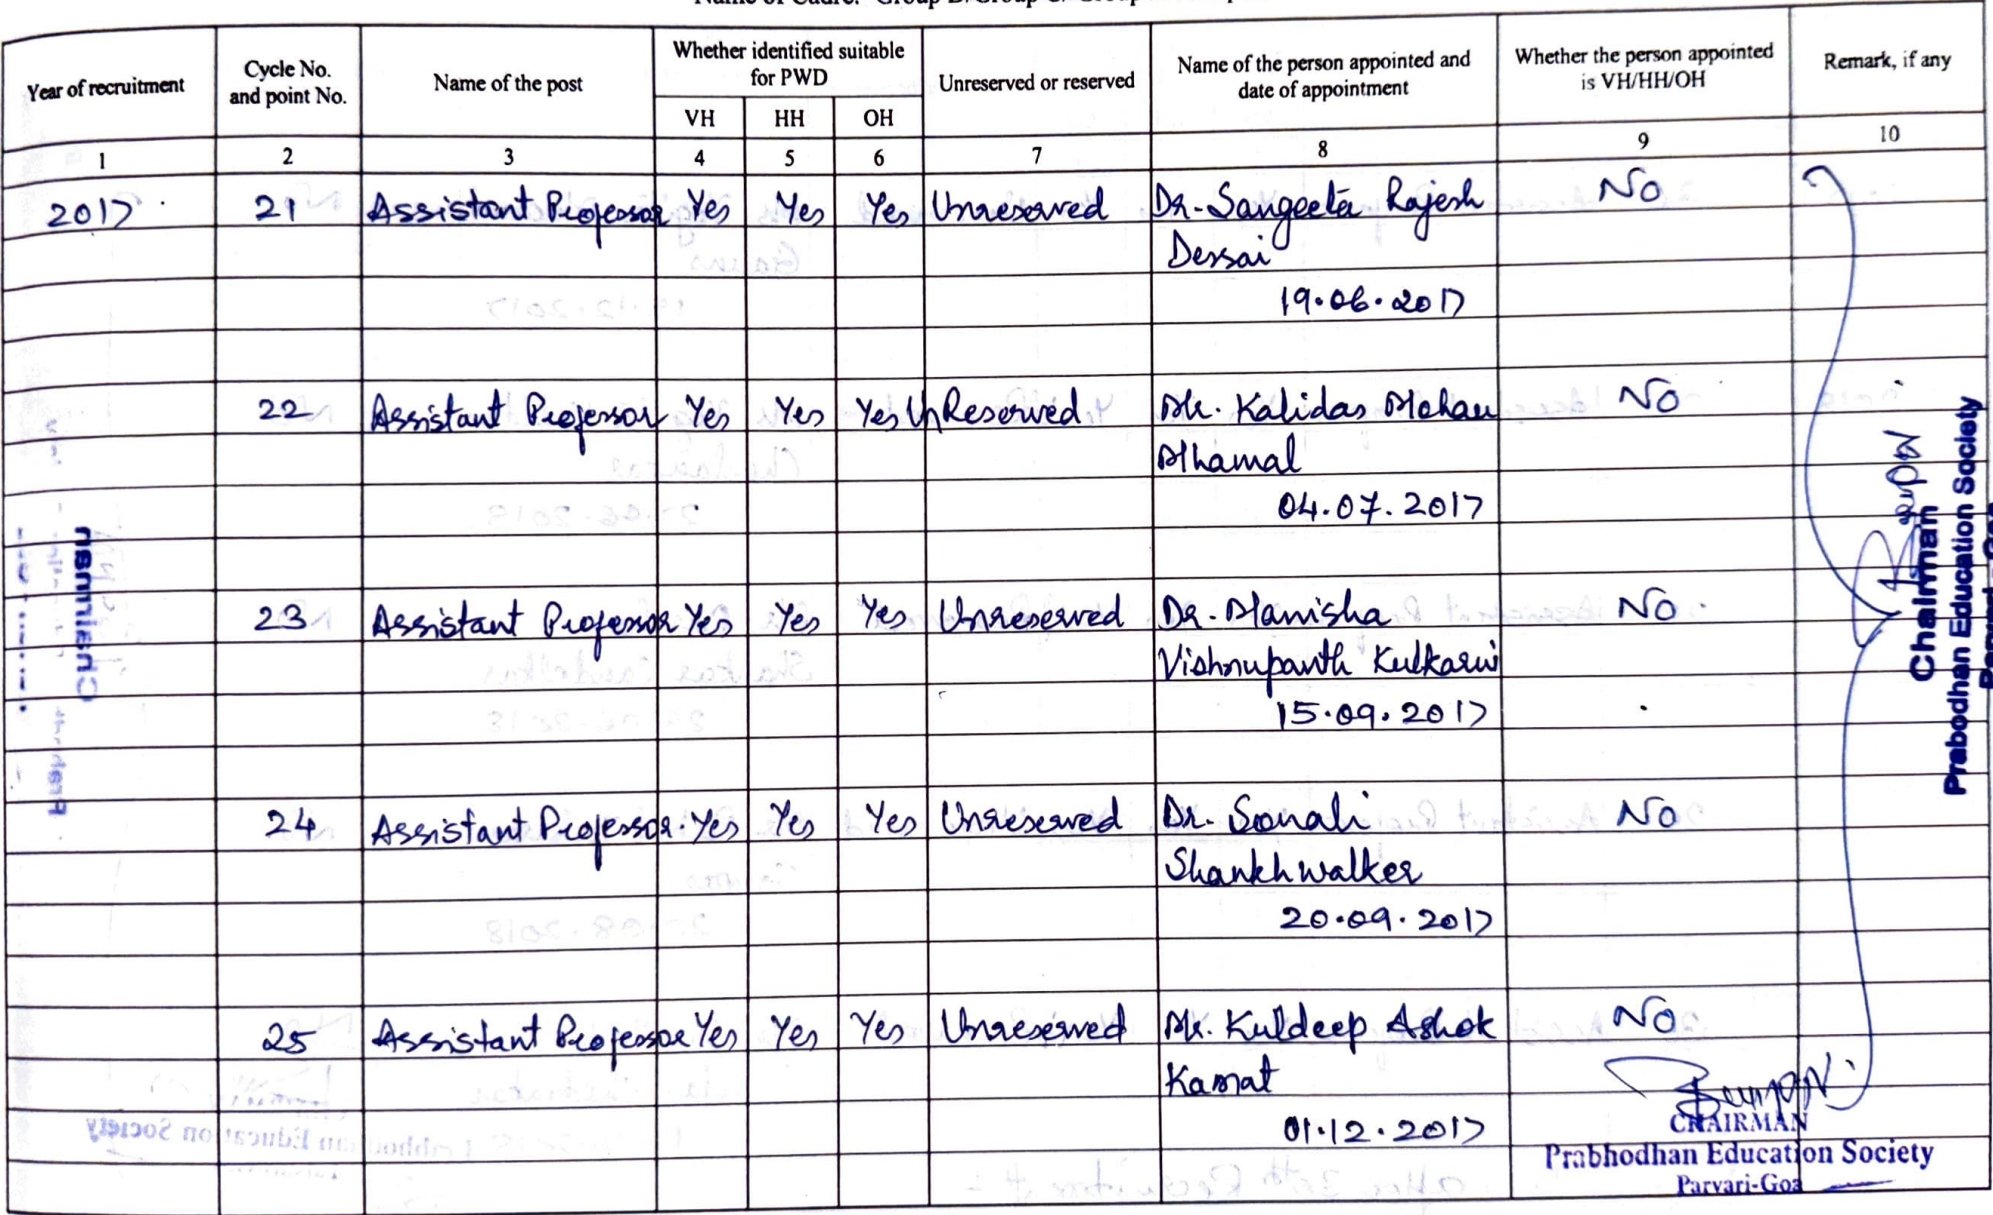 Year of recruitment
Cycle No.
and point No.
Name of the post
Whether identified suitable
for PWD
VH HH OH
Unreserved or reserved
Name of the person appointed and
date of appointment
Whether the person appointed
is VH/HH/OH
Remark, if any
1 2 3 4 5 6 7 8 9 10
2017 21 Assistant Professor Yes Yes Yes Unreserved Dr. Sangeeta Rajesh No
Dessai
19.06.2017
22 Assistant Professor Yes Yes Yes UnReserved Mr. Kalidas Mohan No
Mhamal
04.07.2017
23 Assistant Professor Yes Yes Yes Unreserved Dr. Manisha No
Vishnupanth Kulkarni
15.09.2017
24 Assistant Professor. Yes Yes Yes Unreserved Dr. Sonali No
Shankhwalker
20.09.2017
25 Assistant Professor Yes Yes Yes Unreserved Mr. Kuldeep Ashok No
Kamat
01.12.2017
Chairman
Prabodhan Education Society
CHAIRMAN
Prabhodhan Education Society
Parvari-Goa